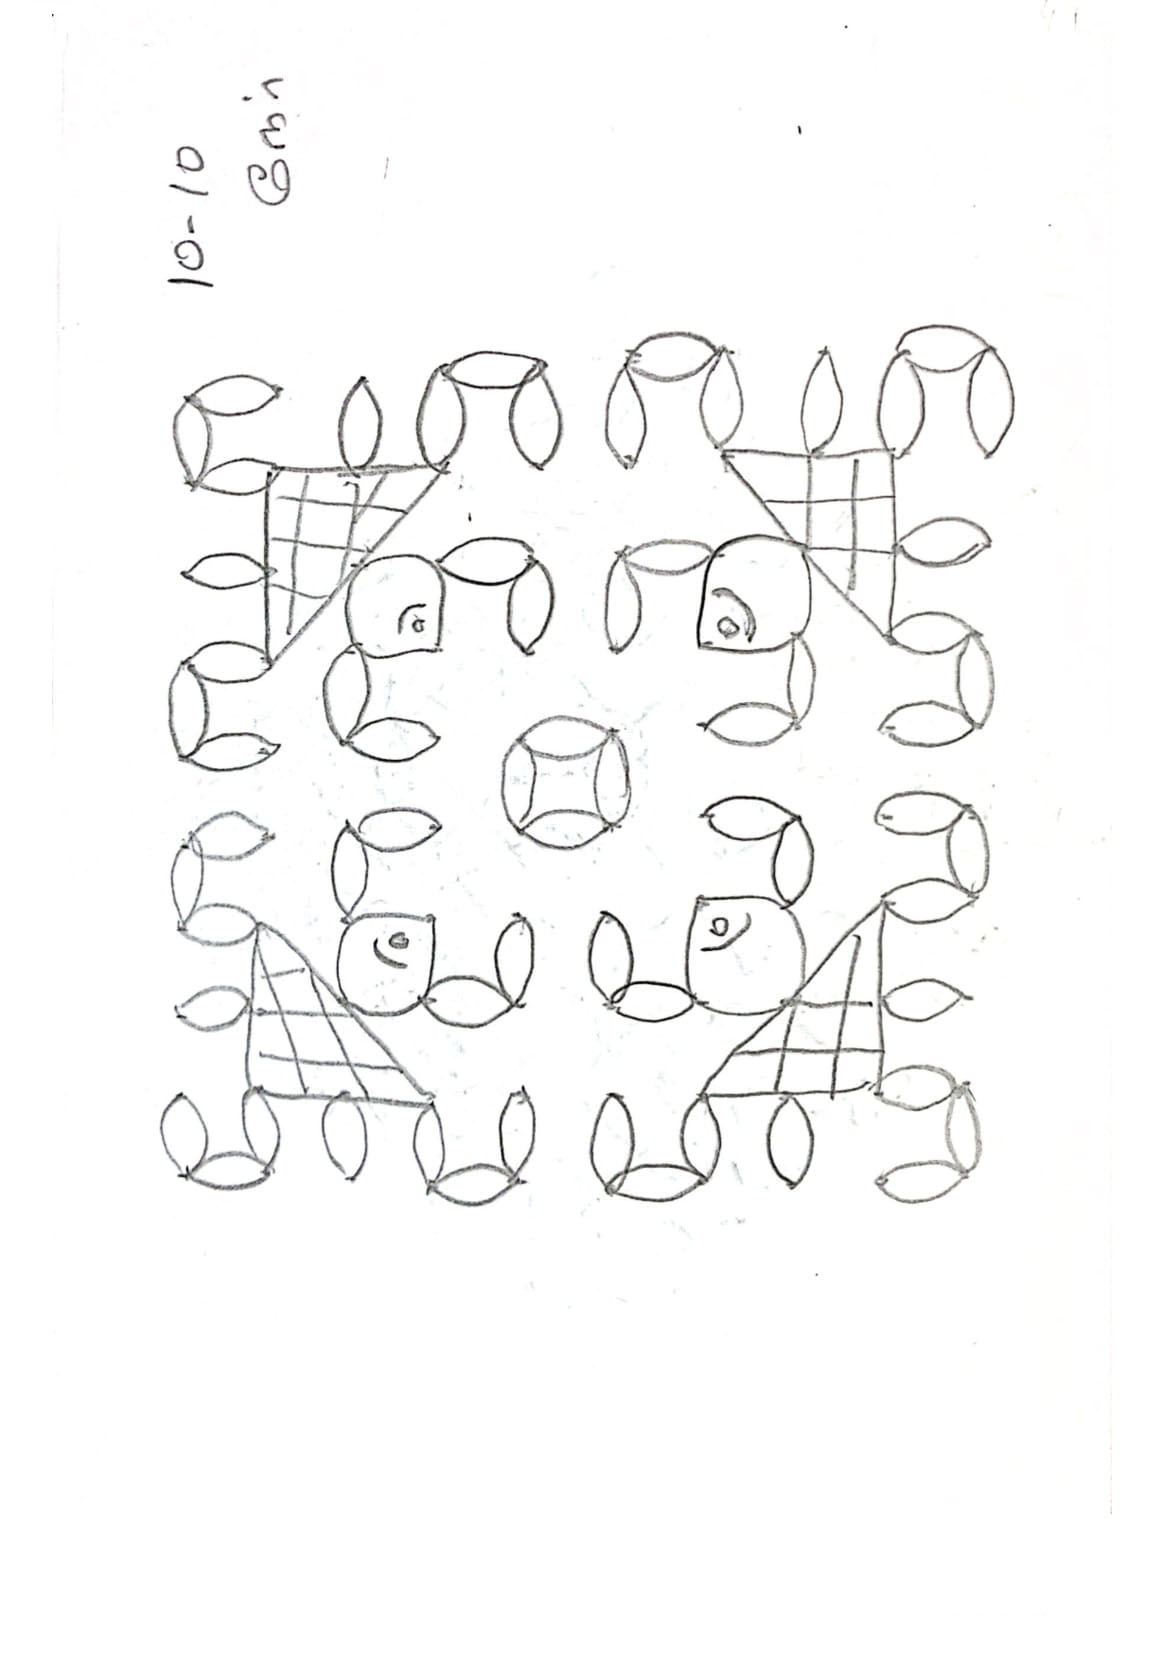 10-10
நேர்